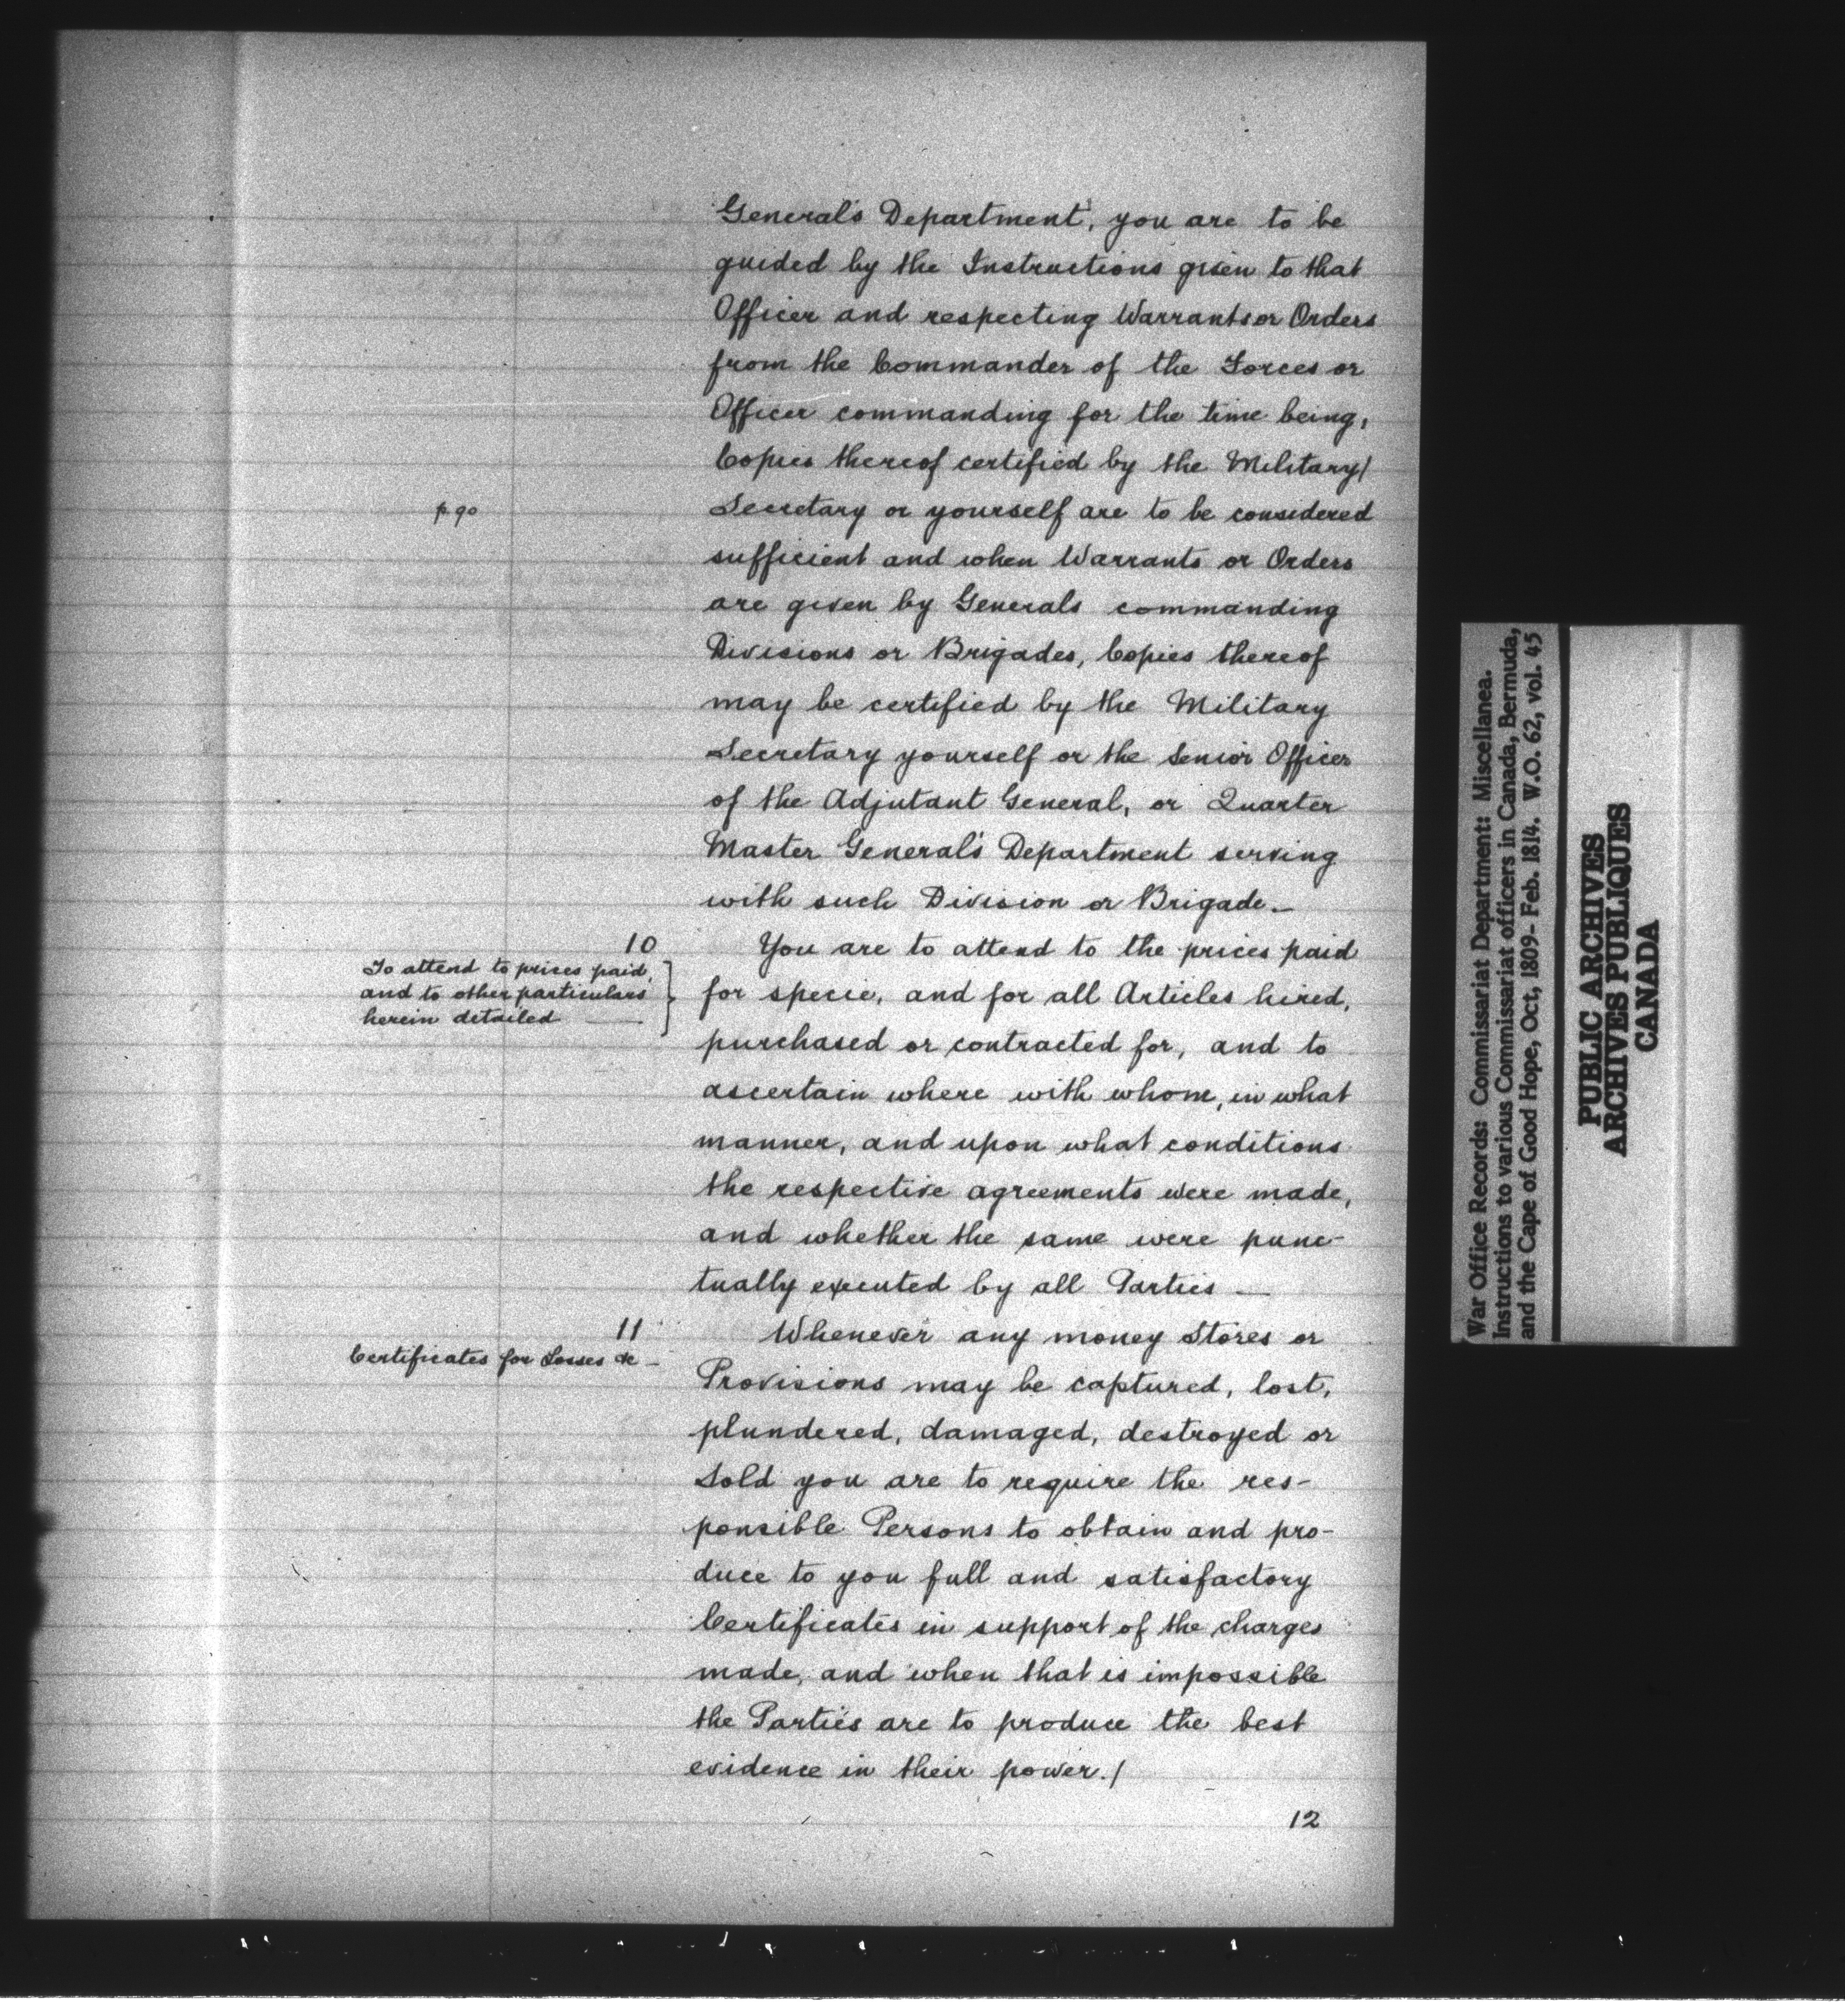 General's Department, you are to be
guided by the Instructions given to that
Officer and respecting Warrants or Orders
from the Commander of the Forces or
Officer commanding for the time being,
Copies thereof certified by the Military/
p. 90
Secretary or yourself are to be considered
sufficient and when Warrants or Orders
are given by Generals commanding
Divisions or Brigades, Copies thereof
may be certified by the Military
Secretary yourself or the Senior Officer
of the Adjutant General, or Quarter
Master General's Department serving
with such Division or Brigade._
10
To attend to prices paid,
and to other particulars
herein detailed ___
You are to attend to the prices paid
for specie, and for all Articles hired,
purchased or contracted for, and to
ascertain where with whom, in what
manner, and upon what conditions
the respective agreements were made,
and whether the same were punc-
tually executed by all Parties _
11
Certificates for Losses &c _
Whenever any money Stores or
Provisions may be captured, lost,
plundered, damaged, destroyed or
Sold you are to require the res-
ponsible Persons to obtain and pro-
duce to you full and satisfactory
Certificates in support of the charges
made, and when that is impossible
the Parties are to produce the best
evidence in their power./
12
War Office Records: Commissariat Department: Miscellanea.
Instructions to various Commissariat officers in Canada, Bermuda,
and the Cape of Good Hope, Oct, 1809- Feb. 1814. W.O. 62, vol. 45
PUBLIC ARCHIVES
ARCHIVES PUBLIQUES
CANADA